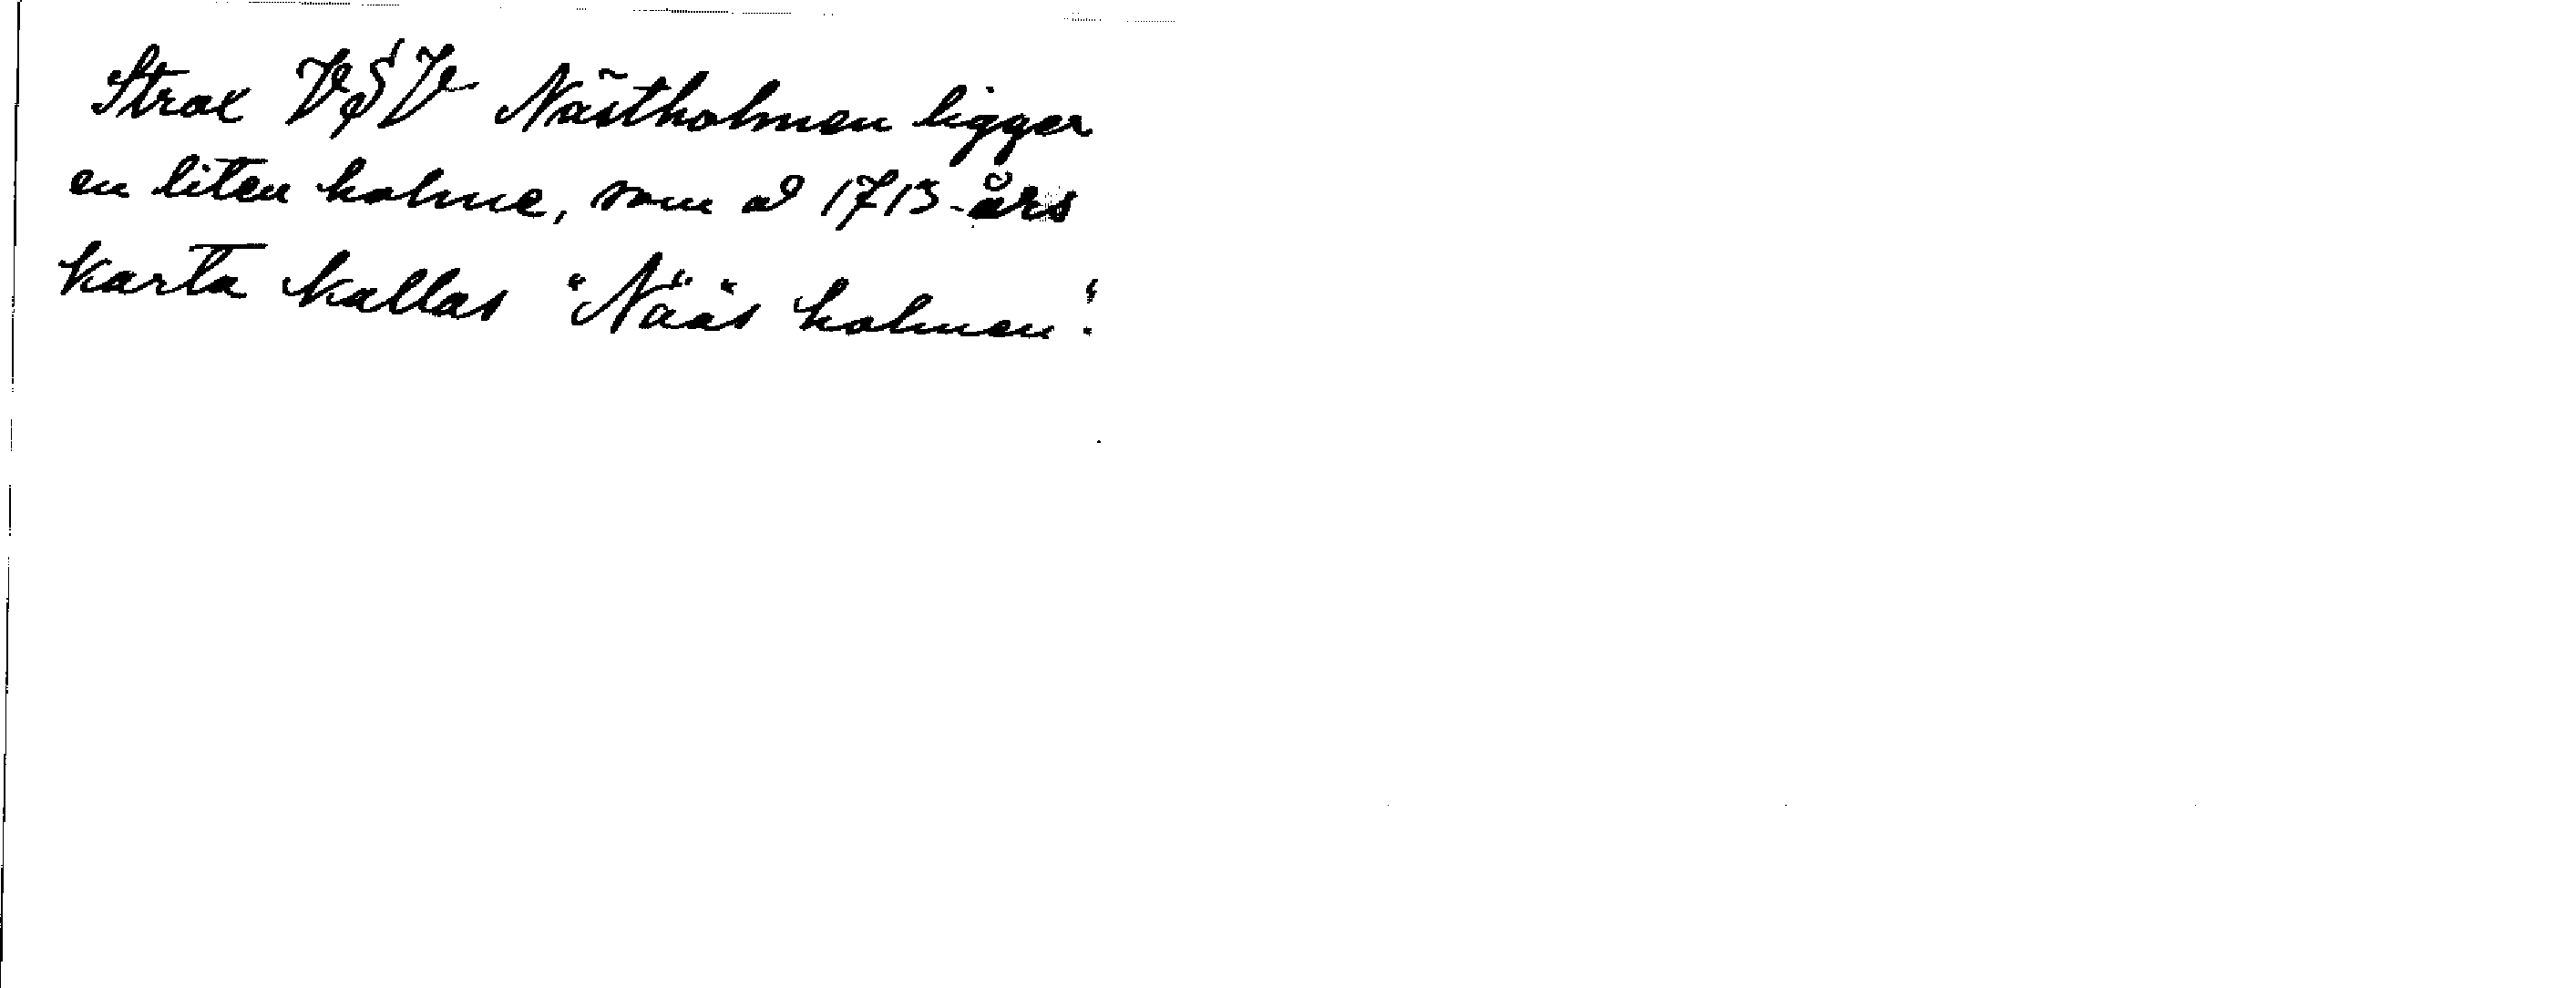 Strax VSV Nästholmen ligger
en liten holme, som å 1713-års
karta kallas "Nääs holmen".